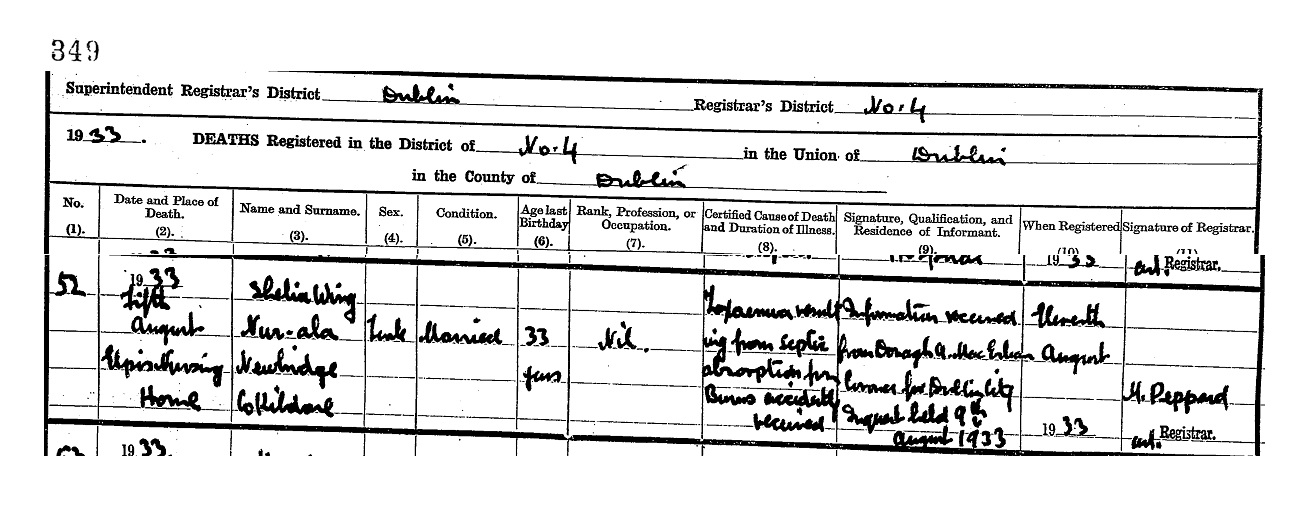 349
Superintendent Registrar's District Dublin Registrar's District No. 4
1933. DEATHS Registered in the District of No. 4 in the Union of Dublin
in the County of Dublin
No. (1). Date and Place of Death. (2). Name and Surname. (3). Sex. (4). Condition. (5). Age last Birthday (6). Rank, Profession, or Occupation. (7). Certified Cause of Death and Duration of Illness. (8). Signature, Qualification, and Residence of Informant. (9). When Registered (10) Signature of Registrar. (11)
1933 Registrar.
52 1933 Shelia Wing Toxaemia result Information received Eleventh
Fifth
August Nur-ala Married 33 Nil. ing from Septic from Donagh A. Mac August
Nursing Newbridge years absorption from Coroner for Dublin City
Home Co Kildare Burns accidently Inquest held 9th M. Peppard
received August 1933 1933 Registrar.
1933